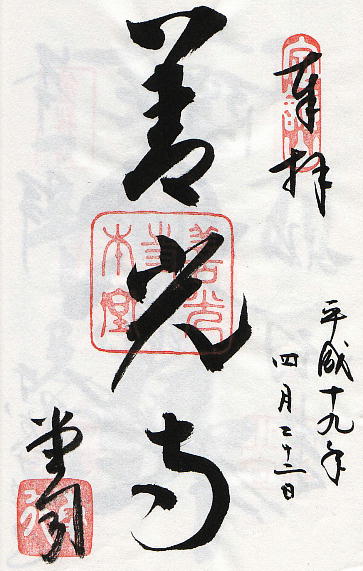 奉拝
平成十九年
四月二十二日
善光寺
善光
寺
本堂
堂司